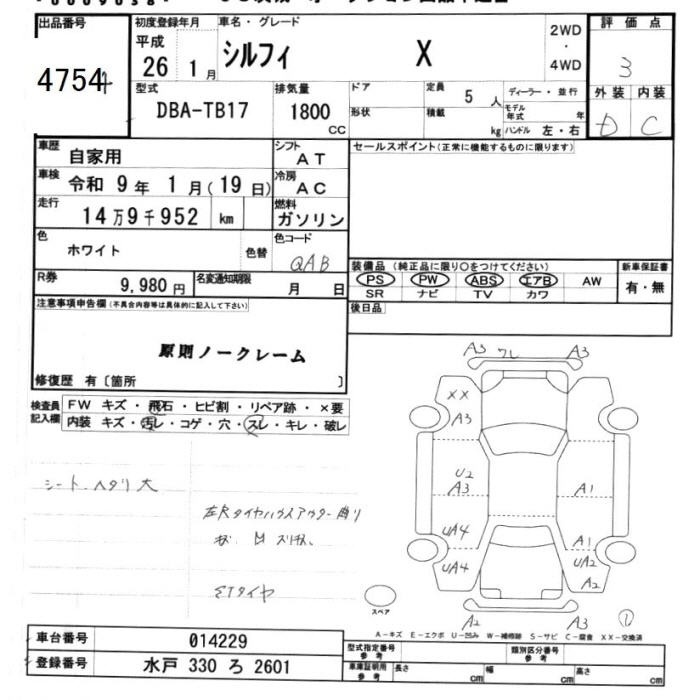 出品番号 初度登録年月 車名・グレード 2WD・4WD 評価点
4754 平成 26 1月 シルフィ X 3
型式 排気量 ドア 定員 5人 ディーラー・並行 外装 内装
DBA-TB17 1800 CC 形状 積載 kg モデル年式 年 ハンドル 左・右 D C
車歴 自家用 シフト AT セールスポイント(正常に機能するものに限ります)
車検 令和 9年 1月(19日) 冷房 AC
走行 14万9千952 km 燃料 ガソリン
色 ホワイト 色替 色コード QAB
R券 9,980円 名変通知期限 月 日
装備品(純正品に限り○をつけてください) 新車保証書
PS PW ABS エアB AW 有・無
SR ナビ TV カワ
後日品
注意事項申告欄(不具合内容等は具体的に記入して下さい)
原則ノークレーム
修復歴 有〔箇所 〕
検査員記入欄 FW キズ・飛石・ヒビ割・リペア跡・×要
内装 キズ・汚レ・コゲ・穴・スレ・キレ・破レ
シート ヘタリ 大
A3 ワレ A3
XX
A3
U2
A3 A1
UA4 A1
UA4 UA2
A2
A2 A3
スペア
A-キズ E-エクボ U-凹み W-補修跡 S-サビ C-腐食 XX-交換済
車台番号 014229
登録番号 水戸 330 ろ 2601
型式指定番号 参考 類別区分番号 参考
車庫証明用 参考 長さ cm 幅 cm 高さ cm